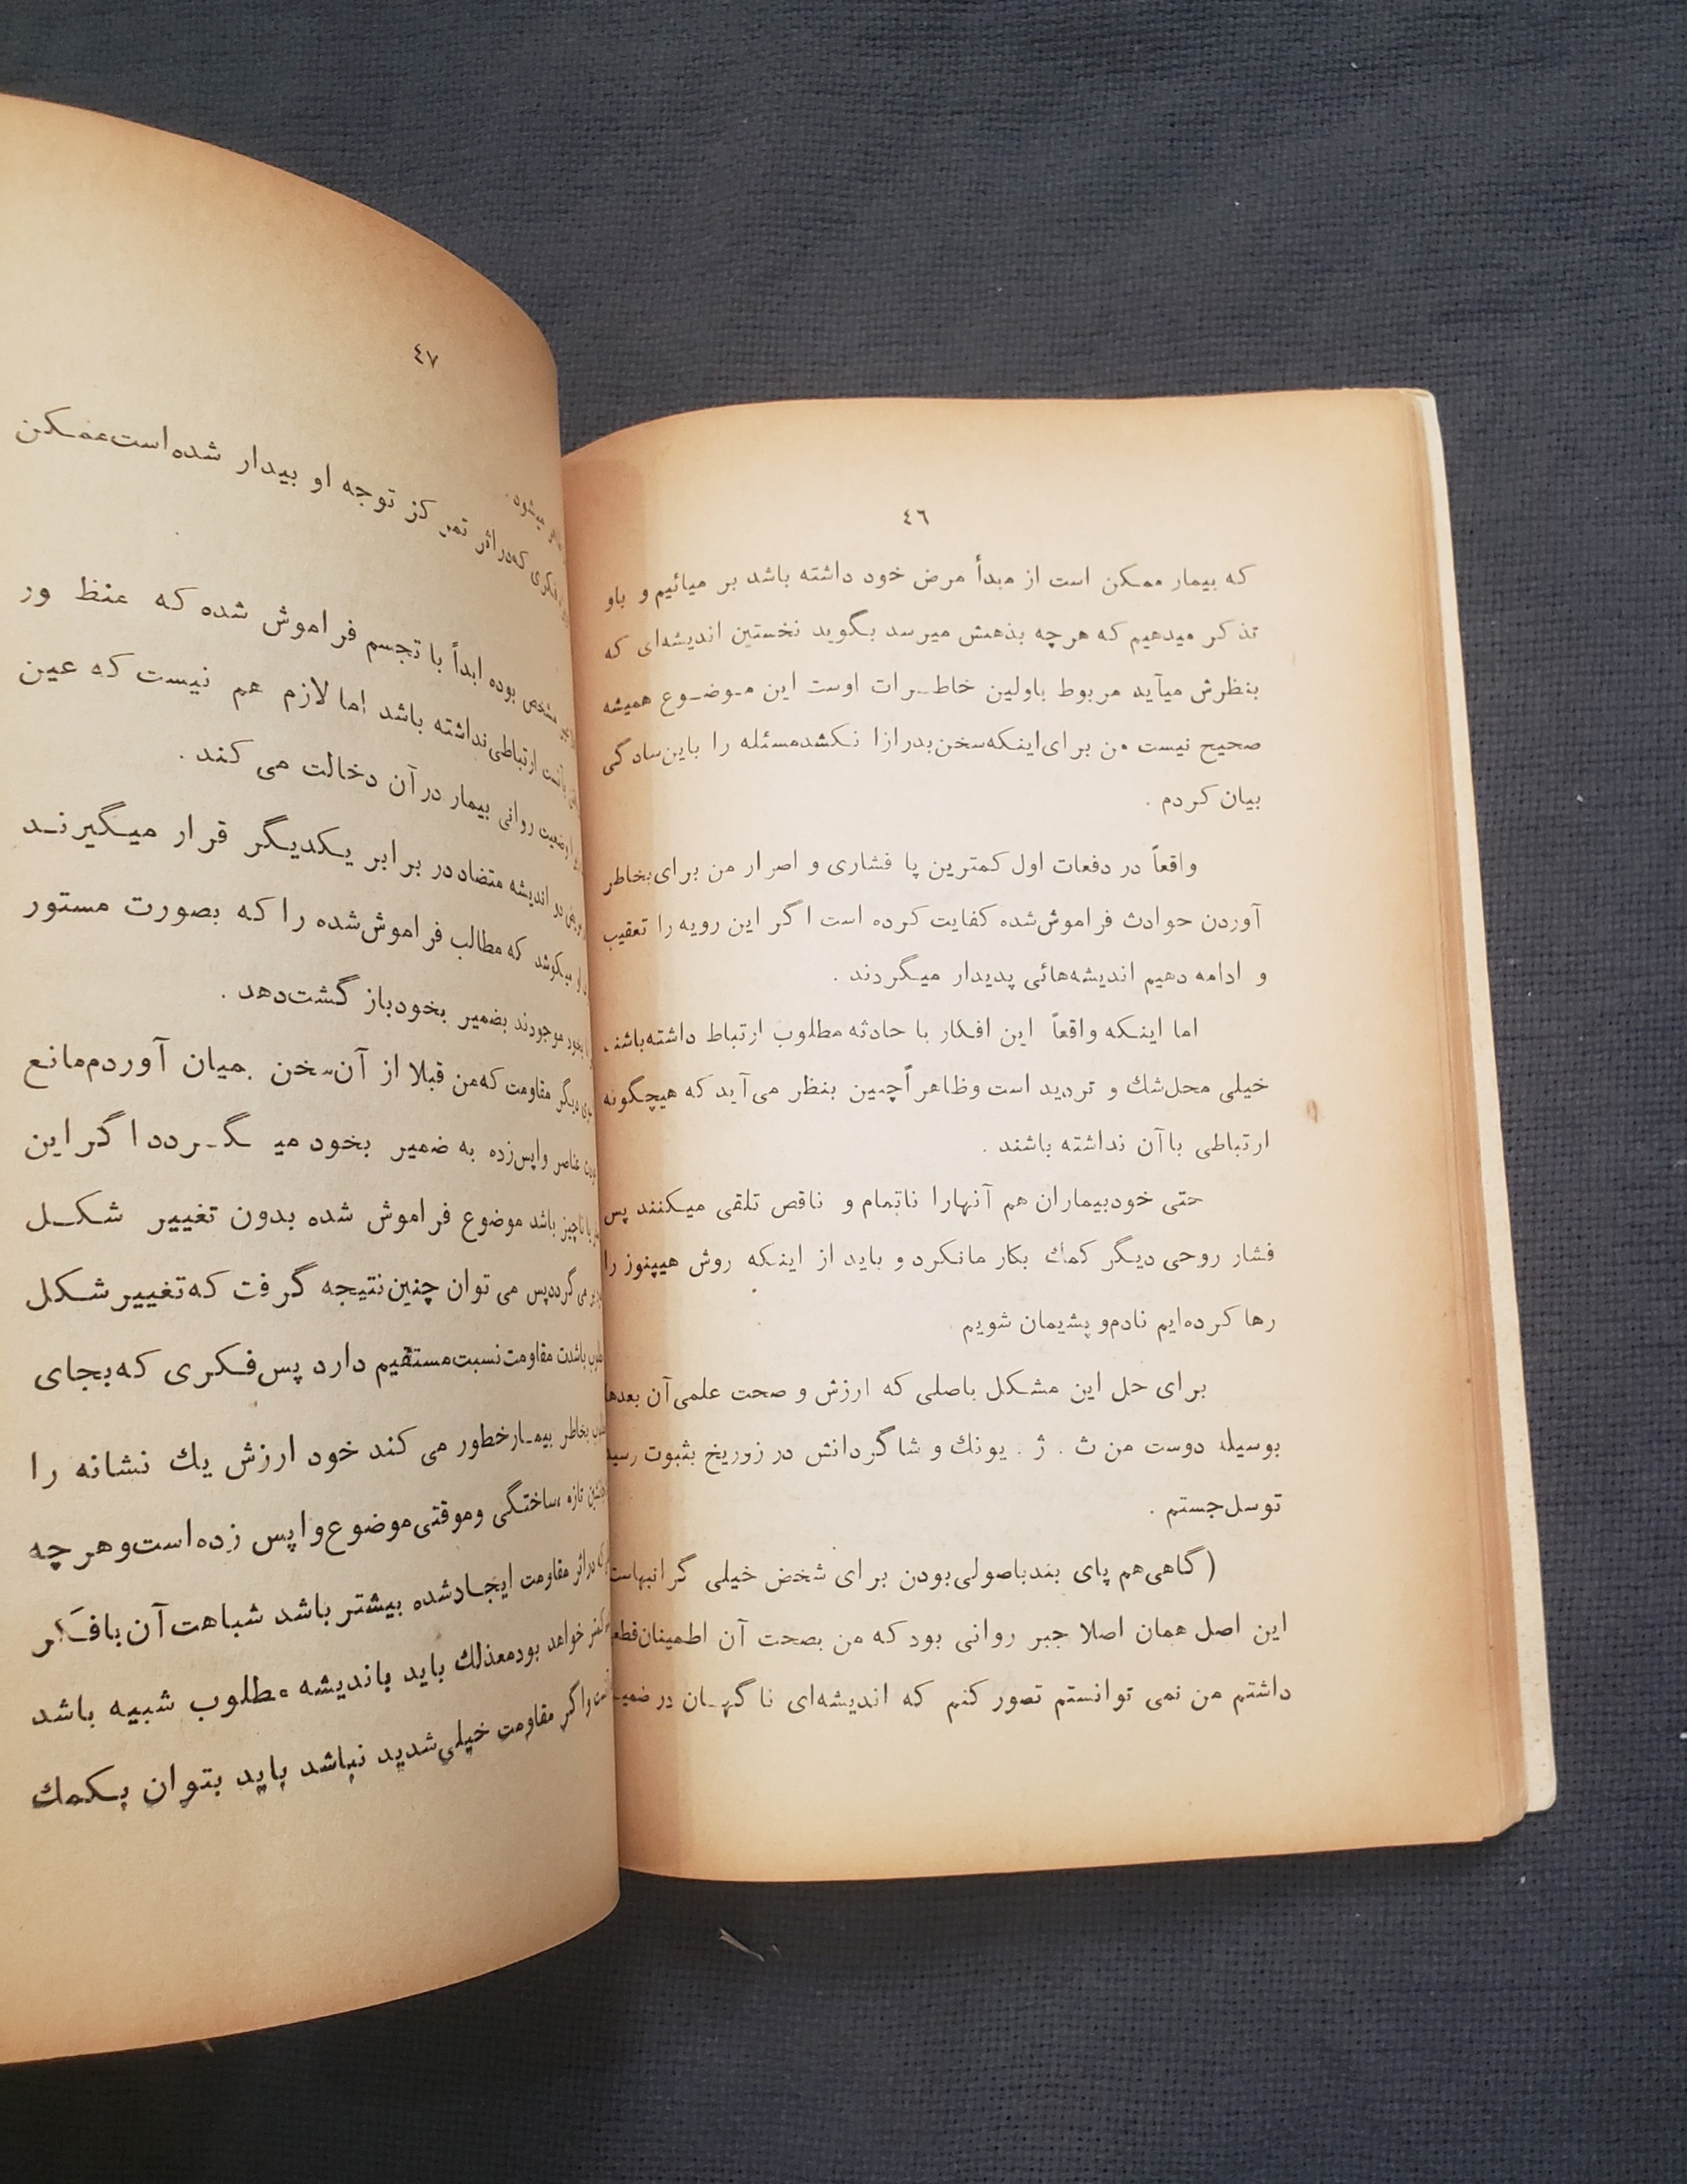 ٤٦
که بیمار ممکن است از مبدأ مرض خود داشته باشد بر میائیم و باو
تذکر میدهیم که هرچه بذهنش میرسد بگوید نخستین اندیشه‌ای که
بنظرش میآید مربوط باولین خاطـرات اوست این موضـوع همیشه
صحیح نیست من برای‌اینکه‌سخن‌بدرازا نکشدمسئله را باین‌سادگی
بیان کردم .
واقعاً در دفعات اول کمترین پا فشاری و اصرار من برای‌بخاطر
آوردن حوادث فراموش‌شده کفایت کرده است اگر این رویه را تعقیب
و ادامه دهیم اندیشه‌هائی پدیدار میگردند .
اما اینکه واقعاً این افکار با حادثه مطلوب ارتباط داشته‌باشند
خیلی محل‌شك و تردید است وظاهراًچنین بنظر می‌آید که هیچگونه
ارتباطی باآن نداشته باشند .
حتی خودبیماران هم آنهارا ناتمام و ناقص تلقی میکنند پس
فشار روحی دیگر کمك بکار مانکرد و باید از اینکه روش هیپنوز را
رها کرده‌ایم نادم‌و پشیمان شویم
برای حل این مشکل باصلی که ارزش و صحت علمی‌آن بعدها
بوسیله دوست من ث . ژ . یونك و شاگردانش در زوریخ بثبوت رسید
توسل‌جستم .
( گاهی‌هم پای بندباصولی‌بودن برای شخض خیلی گرانبهاست
این اصل همان اصلا جبر روانی بود که من بصحت آن اطمینان‌قطعی
داشتم من نمی توانستم تصور کنم که اندیشه‌ای ناگهـان در
٤٧
میشود .
فکری که‌در اثر تمرکز توجه او بیدار شده‌است‌ممکن
مشخص بوده ابداً با تجسم فراموش شده که منظ ور
ارتباطی‌نداشته باشد اما لازم هم نیست که عین
وضعیت روانی بیمار درآن دخالت می کند .
دو اندیشه متضاد در برابر یکدیگر قرار میگیرنـد
میکوشد که مطالب فراموش‌شده را که بصورت مستور
موجودند بضمیر بخودباز گشت‌دهد .
دیگر مقاومت که‌من قبلا از آن‌سخن بمیان آوردم‌مانع
عناصر واپس‌زده به ضمیر بخود میـ گـردد اگر این
ناچیز باشد موضوع فراموش شده بدون تغییر شکـل
می‌گردد‌پس می توان چنین‌نتیجه گرفت که‌تغییرشکل
باشدت مقاومت‌نسبت‌مستقیم دارد پس‌فکری که‌بجای
بخاطر بیمـارخطور می کند خود ارزش یك نشانه را
تازه ،ساختگی وموقتی‌موضوع‌واپس زده‌است‌وهرچه
دراثر مقاومت ایجـادشده بیشتر باشد شباهت آن‌بافکر
کمتر خواهد بودمعذلك باید باندیشه مطلوب شبیه باشد
واگر مقاومت خیلی‌شدید نباشد باید بتوان بکمك